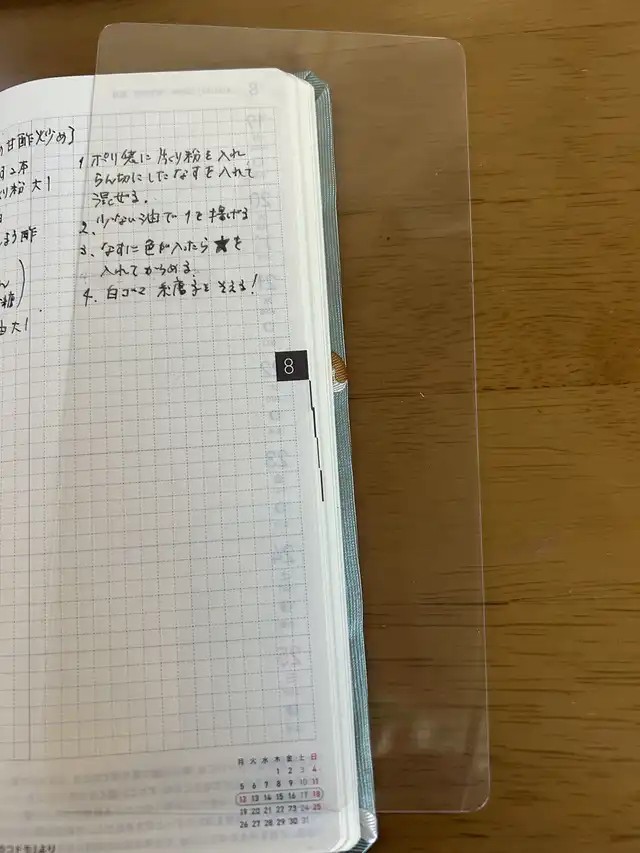 の甘酢炒め】
2本
粉 大1
酢
糖)
油大1
1 ポリ袋に片くり粉を入れ
らん切にしたなすを入れて
混ぜる.
2. 少ない油で1を揚げる
3. なすに色が入たら★を
入れてからめる.
4. 白ゴマ 糸唐辛子を そえる!
8
月 火 水 木 金 土 日
1 2 3 4
5 6 7 8 9 10 11
12 13 14 15 16 17 18
19 20 21 22 23 24 25
26 27 28 29 30 31